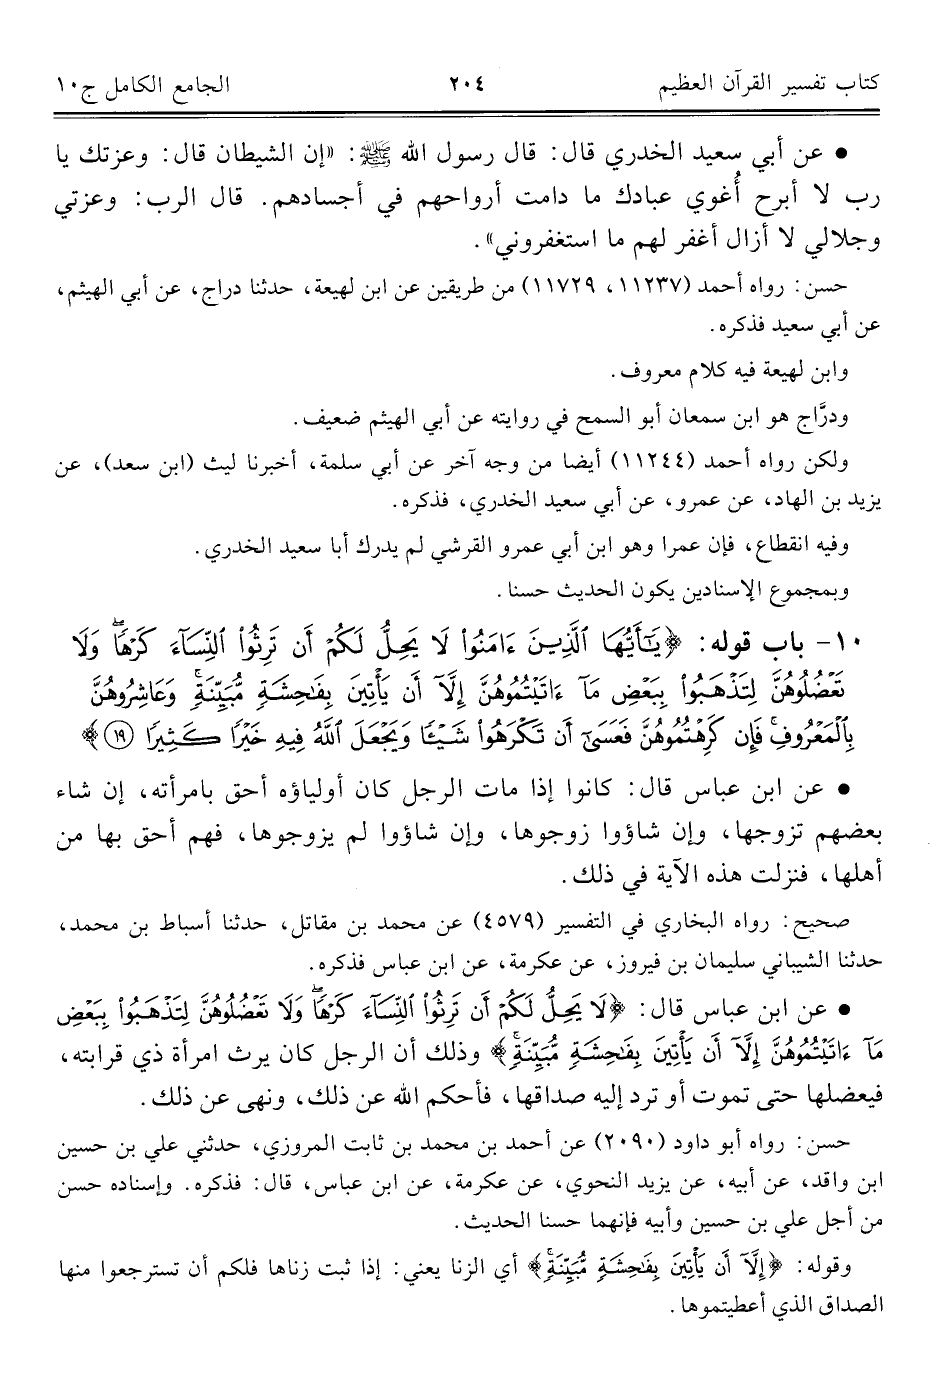 كتاب تفسير القرآن العظيم ٢٠٤ الجامع الكامل ج١٠
● عن أبي سعيد الخدري قال: قال رسول الله ﷺ: «إن الشيطان قال: وعزتك يا
رب لا أبرح أُغوي عبادك ما دامت أرواحهم في أجسادهم. قال الرب: وعزتي
وجلالي لا أزال أغفر لهم ما استغفروني».
حسن: رواه أحمد (١١٢٣٧، ١١٧٢٩) من طريقين عن ابن لهيعة، حدثنا دراج، عن أبي الهيثم،
عن أبي سعيد فذكره.
وابن لهيعة فيه كلام معروف.
ودرَّاج هو ابن سمعان أبو السمح في روايته عن أبي الهيثم ضعيف.
ولكن رواه أحمد (١١٢٤٤) أيضا من وجه آخر عن أبي سلمة، أخبرنا ليث (ابن سعد)، عن
يزيد بن الهاد، عن عمرو، عن أبي سعيد الخدري، فذكره.
وفيه انقطاع، فإن عمرا وهو ابن أبي عمرو القرشي لم يدرك أبا سعيد الخدري.
وبمجموع الإسنادين يكون الحديث حسنا.
١٠- باب قوله: ﴿يَـٰٓأَيُّهَا ٱلَّذِينَ ءَامَنُوا۟ لَا يَحِلُّ لَكُمْ أَن تَرِثُوا۟ ٱلنِّسَآءَ كَرْهًاۖ وَلَا
تَعْضُلُوهُنَّ لِتَذْهَبُوا۟ بِبَعْضِ مَآ ءَاتَيْتُمُوهُنَّ إِلَّآ أَن يَأْتِينَ بِفَـٰحِشَةٍ مُّبَيِّنَةٍۚ وَعَاشِرُوهُنَّ
بِٱلْمَعْرُوفِۚ فَإِن كَرِهْتُمُوهُنَّ فَعَسَىٰٓ أَن تَكْرَهُوا۟ شَيْـًٔا وَيَجْعَلَ ٱللَّهُ فِيهِ خَيْرًا كَثِيرًا ١٩﴾
● عن ابن عباس قال: كانوا إذا مات الرجل كان أولياؤه أحق بامرأته، إن شاء
بعضهم تزوجها، وإن شاؤوا زوجوها، وإن شاؤوا لم يزوجوها، فهم أحق بها من
أهلها، فنزلت هذه الآية في ذلك.
صحيح: رواه البخاري في التفسير (٤٥٧٩) عن محمد بن مقاتل، حدثنا أسباط بن محمد،
حدثنا الشيباني سليمان بن فيروز، عن عكرمة، عن ابن عباس فذكره.
● عن ابن عباس قال: ﴿لَا يَحِلُّ لَكُمْ أَن تَرِثُوا۟ ٱلنِّسَآءَ كَرْهًاۖ وَلَا تَعْضُلُوهُنَّ لِتَذْهَبُوا۟ بِبَعْضِ
مَآ ءَاتَيْتُمُوهُنَّ إِلَّآ أَن يَأْتِينَ بِفَـٰحِشَةٍ مُّبَيِّنَةٍۚ﴾ وذلك أن الرجل كان يرث امرأة ذي قرابته،
فيعضلها حتى تموت أو ترد إليه صداقها، فأحكم الله عن ذلك، ونهى عن ذلك.
حسن: رواه أبو داود (٢٠٩٠) عن أحمد بن محمد بن ثابت المروزي، حدثني علي بن حسين
ابن واقد، عن أبيه، عن يزيد النحوي، عن عكرمة، عن ابن عباس، قال: فذكره. وإسناده حسن
من أجل علي بن حسين وأبيه فإنهما حسنا الحديث.
وقوله: ﴿إِلَّآ أَن يَأْتِينَ بِفَـٰحِشَةٍ مُّبَيِّنَةٍۚ﴾ أي الزنا يعني: إذا ثبت زناها فلكم أن تسترجعوا منها
الصداق الذي أعطيتموها.